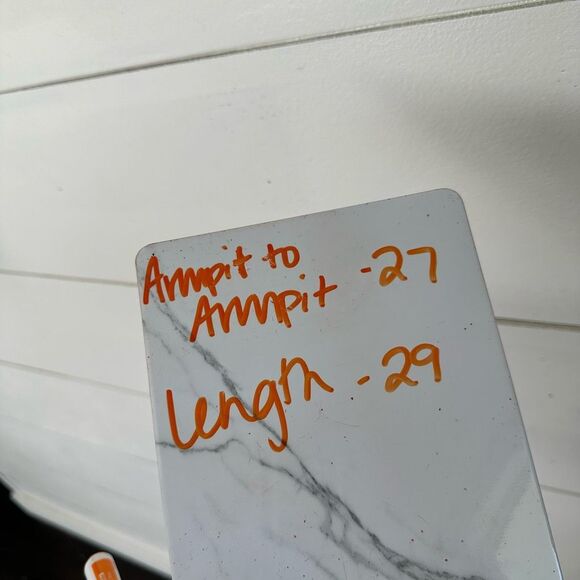 Armpit to
Armpit -27
Length -29